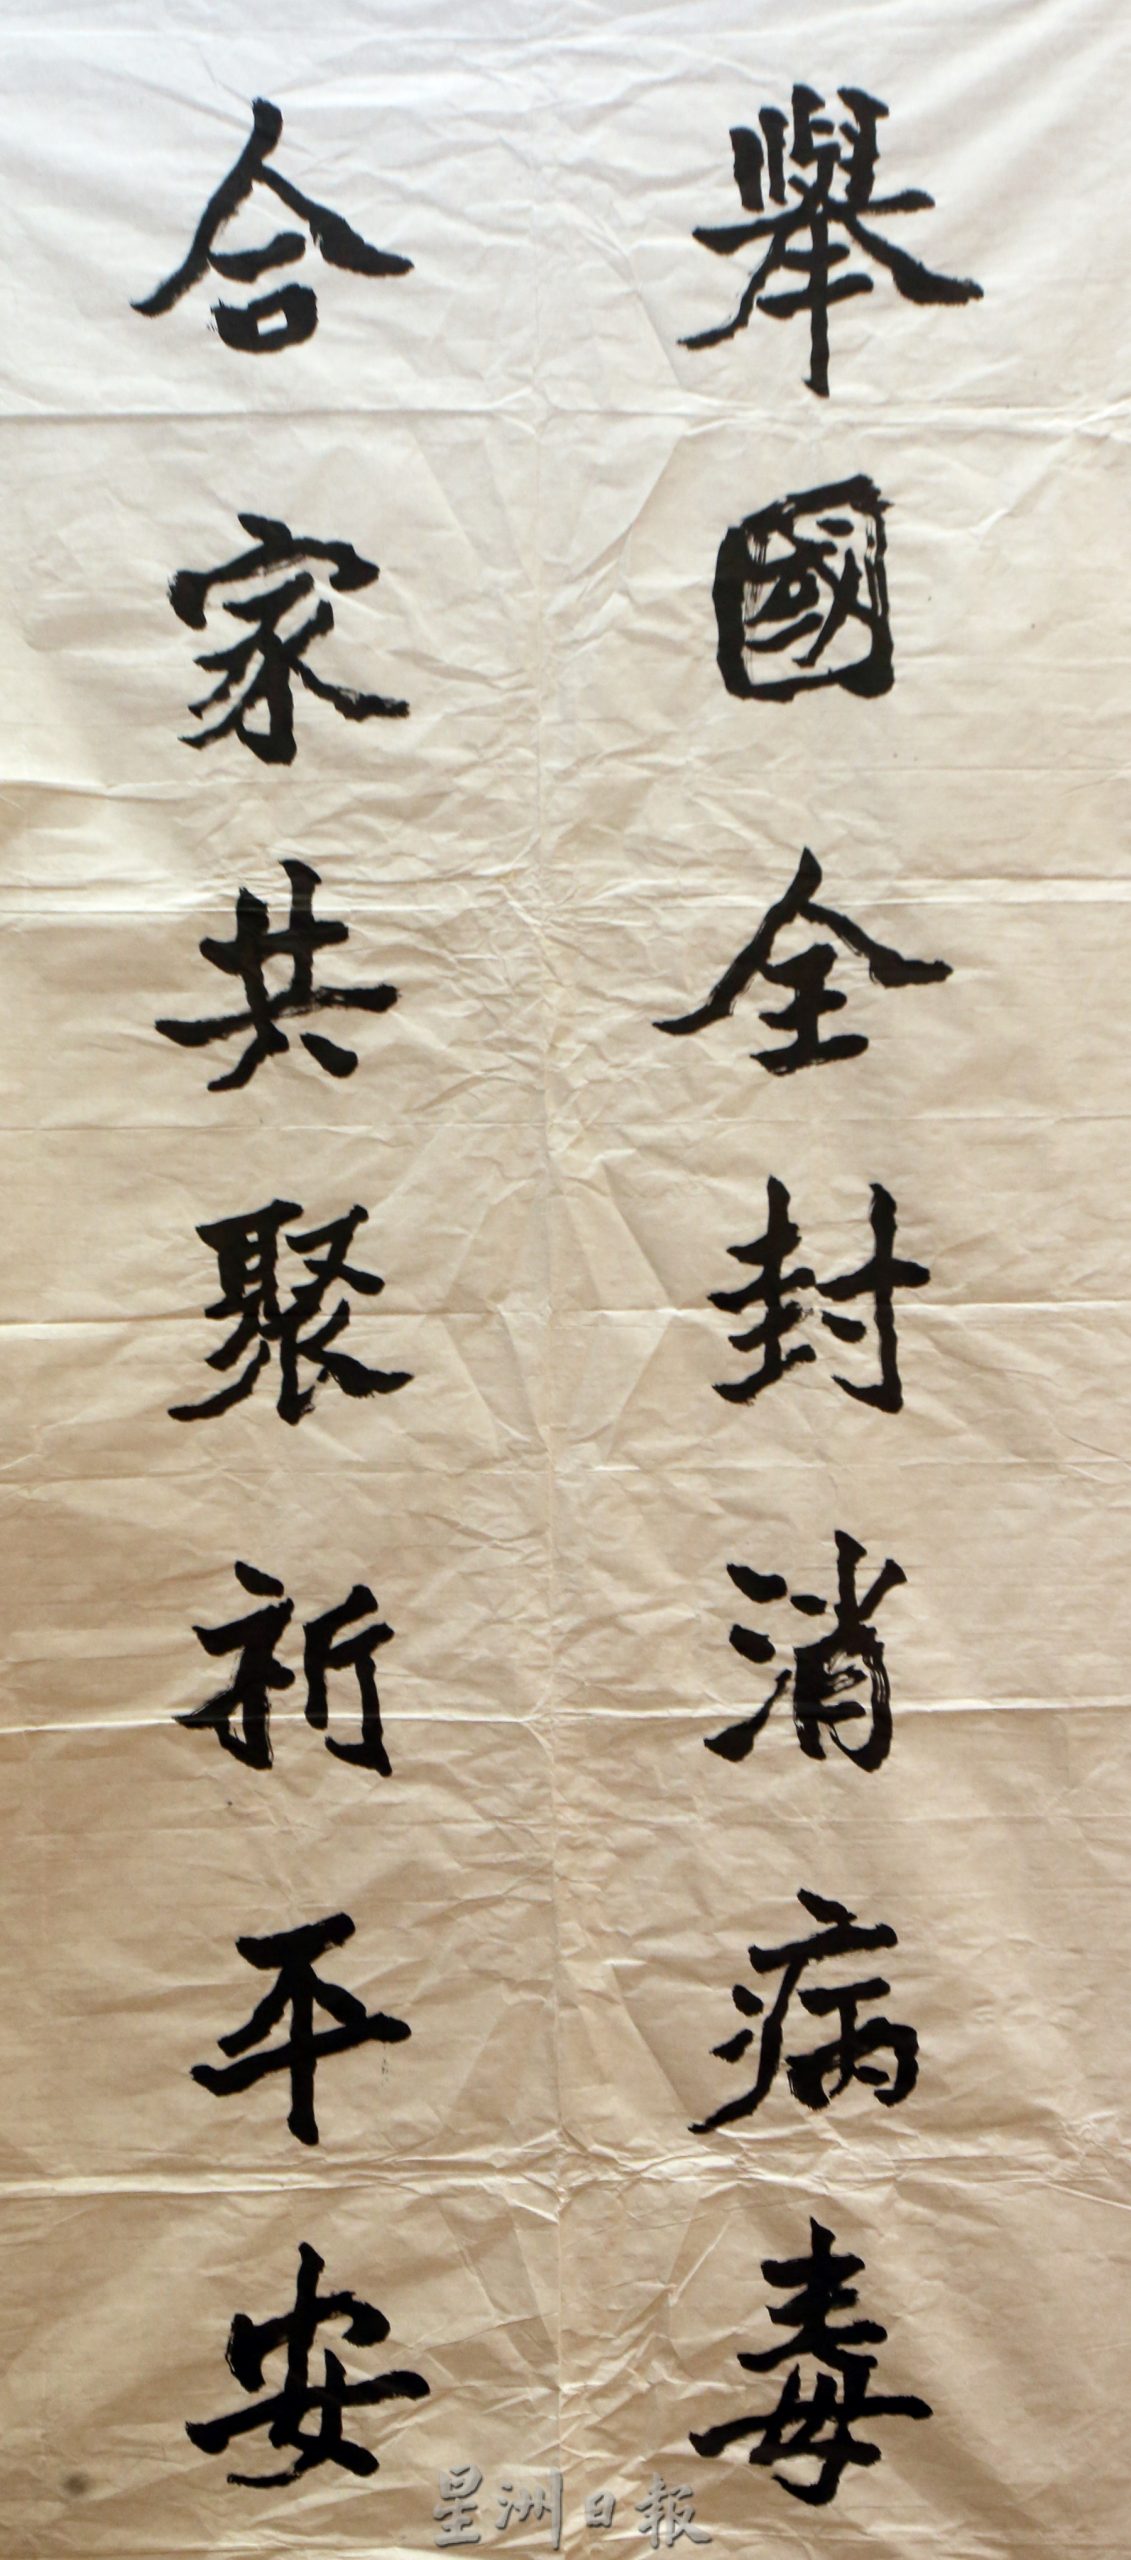 舉國全封消病毒
合家共聚祈平安
星洲日報